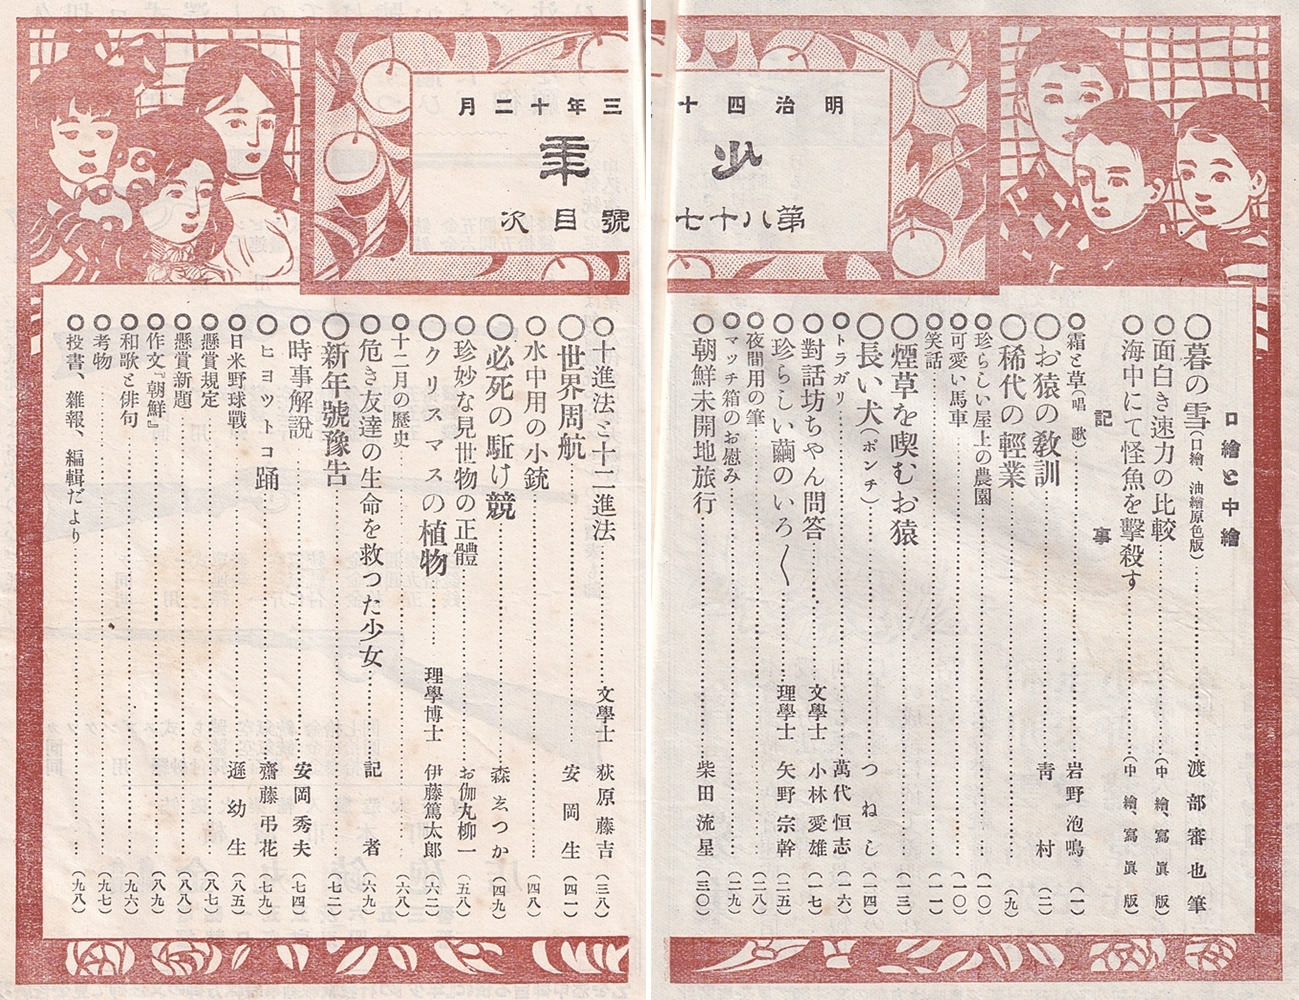 明治四十三年十二月
少年
第八十七號目次
口繪と中繪
◎暮の雪(口繪、油繪原色版)……渡部審也筆
◎面白き速力の比較……(中繪、寫眞版)
◎海中にて怪魚を擊殺す……(中繪、寫眞版)
記事
◎霜と草(唱歌)……岩野泡鳴(一)
◎お猿の教訓……靑村(二)
◎稀代の輕業……(九)
◎珍らしい屋上の農園……(一〇)
◎可愛い馬車……(一〇)
◎笑話……(一一)
◎煙草を喫むお猿……(一三)
◎長い犬(ポンチ)……つねし(一四)
◎トラガリ……萬代恒志(一六)
◎對話坊ちやん問答……文學士 小林愛雄(一七)
◎珍らしい繭のいろ〳〵……理學士 矢野宗幹(二五)
◎夜間用の筆……(二八)
◎マッチ箱のお慰み……(二九)
◎朝鮮未開地旅行……柴田流星(三〇)
◎十進法と十二進法……文學士 萩原藤吉(三八)
◎世界周航……安岡生(四一)
◎水中用の小銃……(四八)
◎必死の駈け競……森ゑつか(四九)
◎珍妙な見世物の正體……お伽丸柳一(五八)
◎クリスマスの植物……理學博士 伊藤篤太郎(六二)
◎十二月の歷史……(六八)
◎危き友達の生命を救つた少女……記者(六九)
◎新年號豫告……(七二)
◎時事解說……安岡秀夫(七四)
◎ヒヨットコ踊……齋藤弔花(七九)
◎日米野球戰……遜幼生(八五)
◎懸賞規定……(八七)
◎懸賞新題……(八八)
◎作文『朝鮮』……(八九)
◎和歌と俳句……(九六)
◎考物……(九七)
◎投書、雜報、編輯だより……(九八)